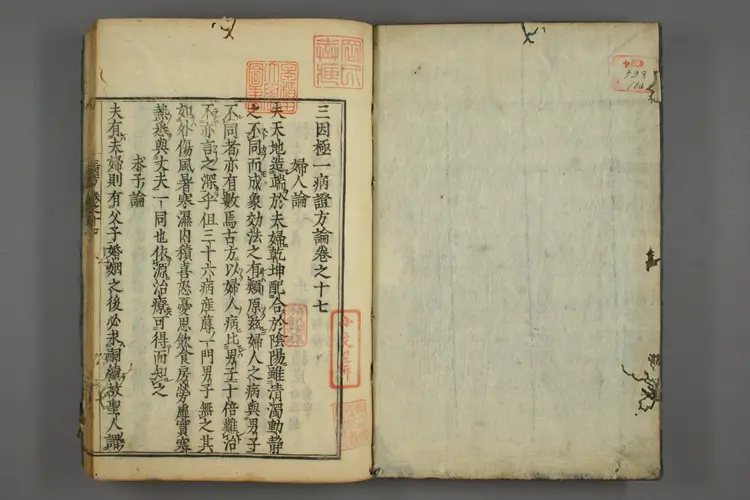 三因極一病證方論卷之十七
婦人論
夫天地造端於夫婦乾坤配合於陰陽雖清濁動靜
之不同而成象効法之有類原茲婦人之病與男子
不同者亦有數焉古方以婦人病比男子十倍難治
不亦言之深乎但三十六病産蓐一門男子無之其
如外傷風暑寒濕内積喜怒憂思飲食房勞虛實寒
熱悉與丈夫一同也依源治療可得而知之
求子論
夫有夫婦則有父子婚姻之後必求嗣續故聖人謂